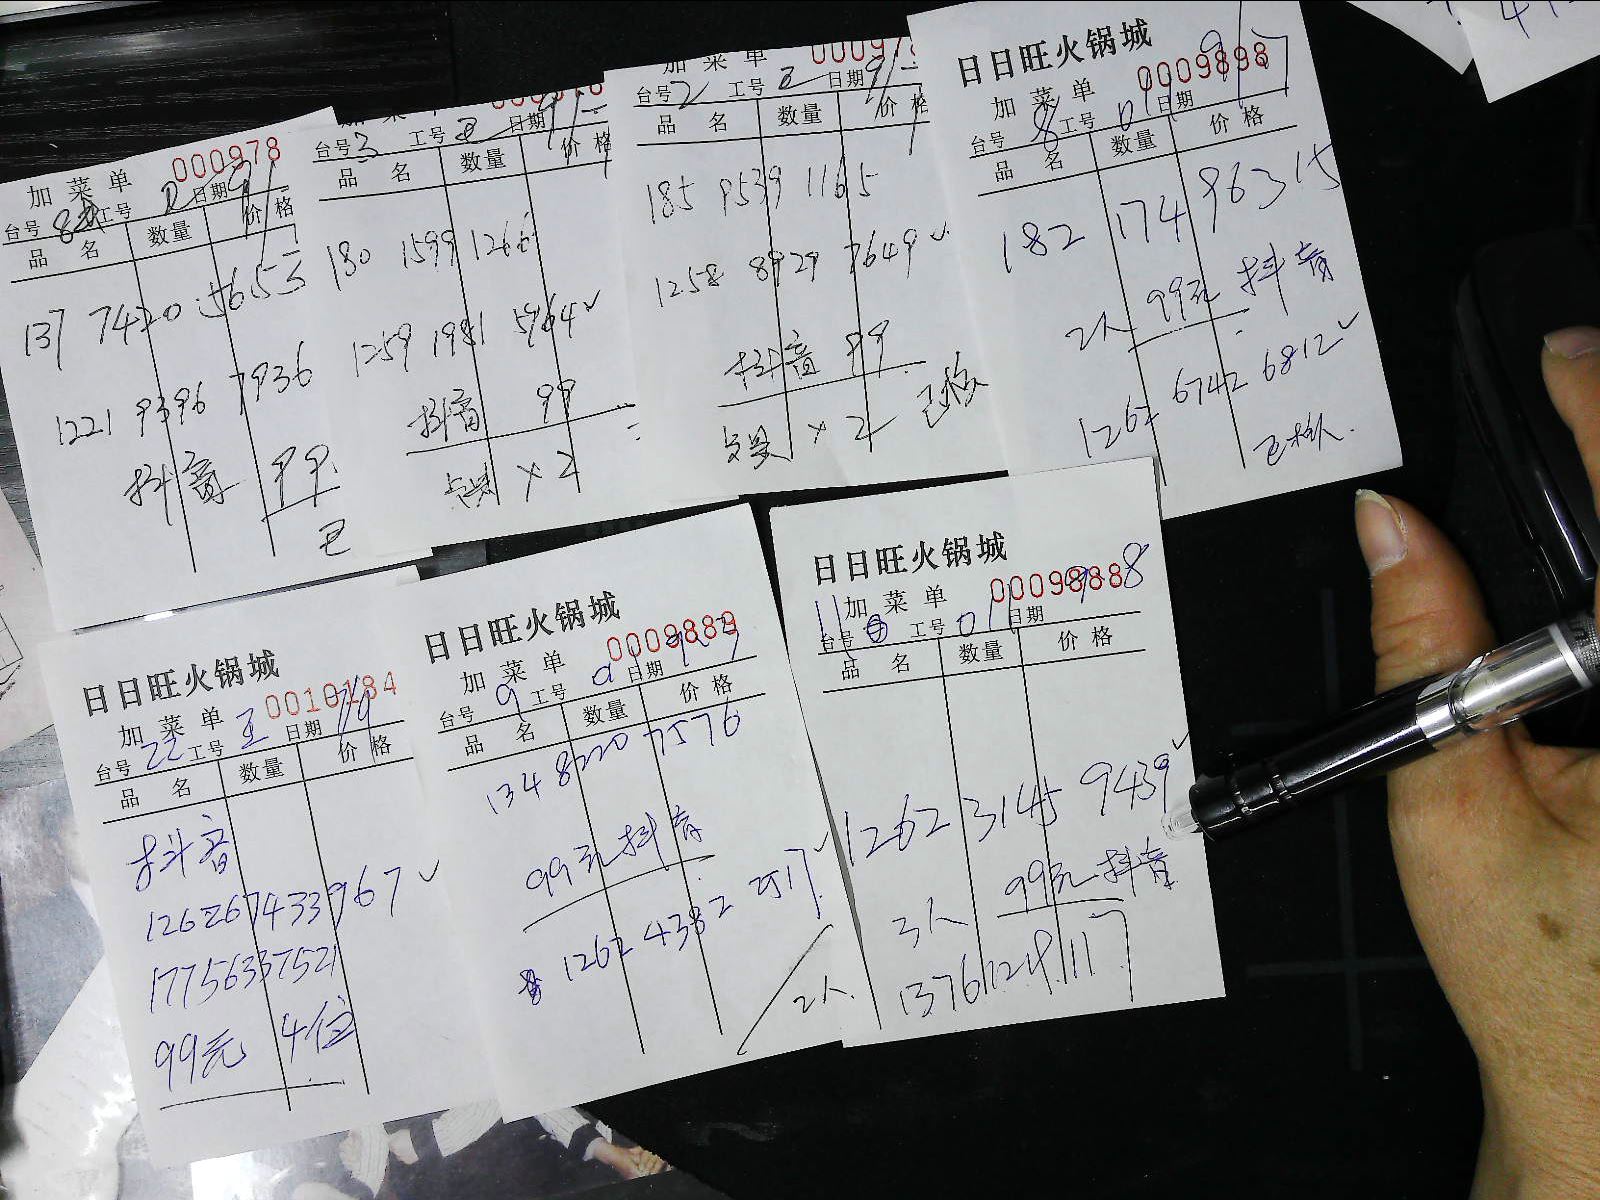 000978
加菜单
台号 8 工号 日期
品名 数量 价格
137 7420 5653
1221 9396 7936
抖音 99
已
台号 3 工号 日期
品名 数量 价格
180 1599 1266
1259 1981 5964 ✓
抖音 99
×2
加菜单
台号 2 工号 日期
品名 数量 价格
185 9539 1165
1258 8929 7649 ✓
抖音 99
×2 已核
日日旺火锅城
0009898
加菜单
台号 8 工号 01 日期 9/7
品名 数量 价格
182 174 96315
2人 99元 抖音
1262 6742 6812 ✓
已核
日日旺火锅城
0010184
加菜单
台号 22 工号 王 日期
品名 数量 价格
抖音
126267433967 ✓
17756337521
99元 4位
日日旺火锅城
0009889
加菜单
台号 9 工号 日期
品名 数量 价格
134 8220 7576
99元抖音
1262 4382
2人
日日旺火锅城
0009888
加菜单
台号 工号 01 日期 9.8
品名 数量 价格
1262 3145 9439 ✓
3人 99元抖音